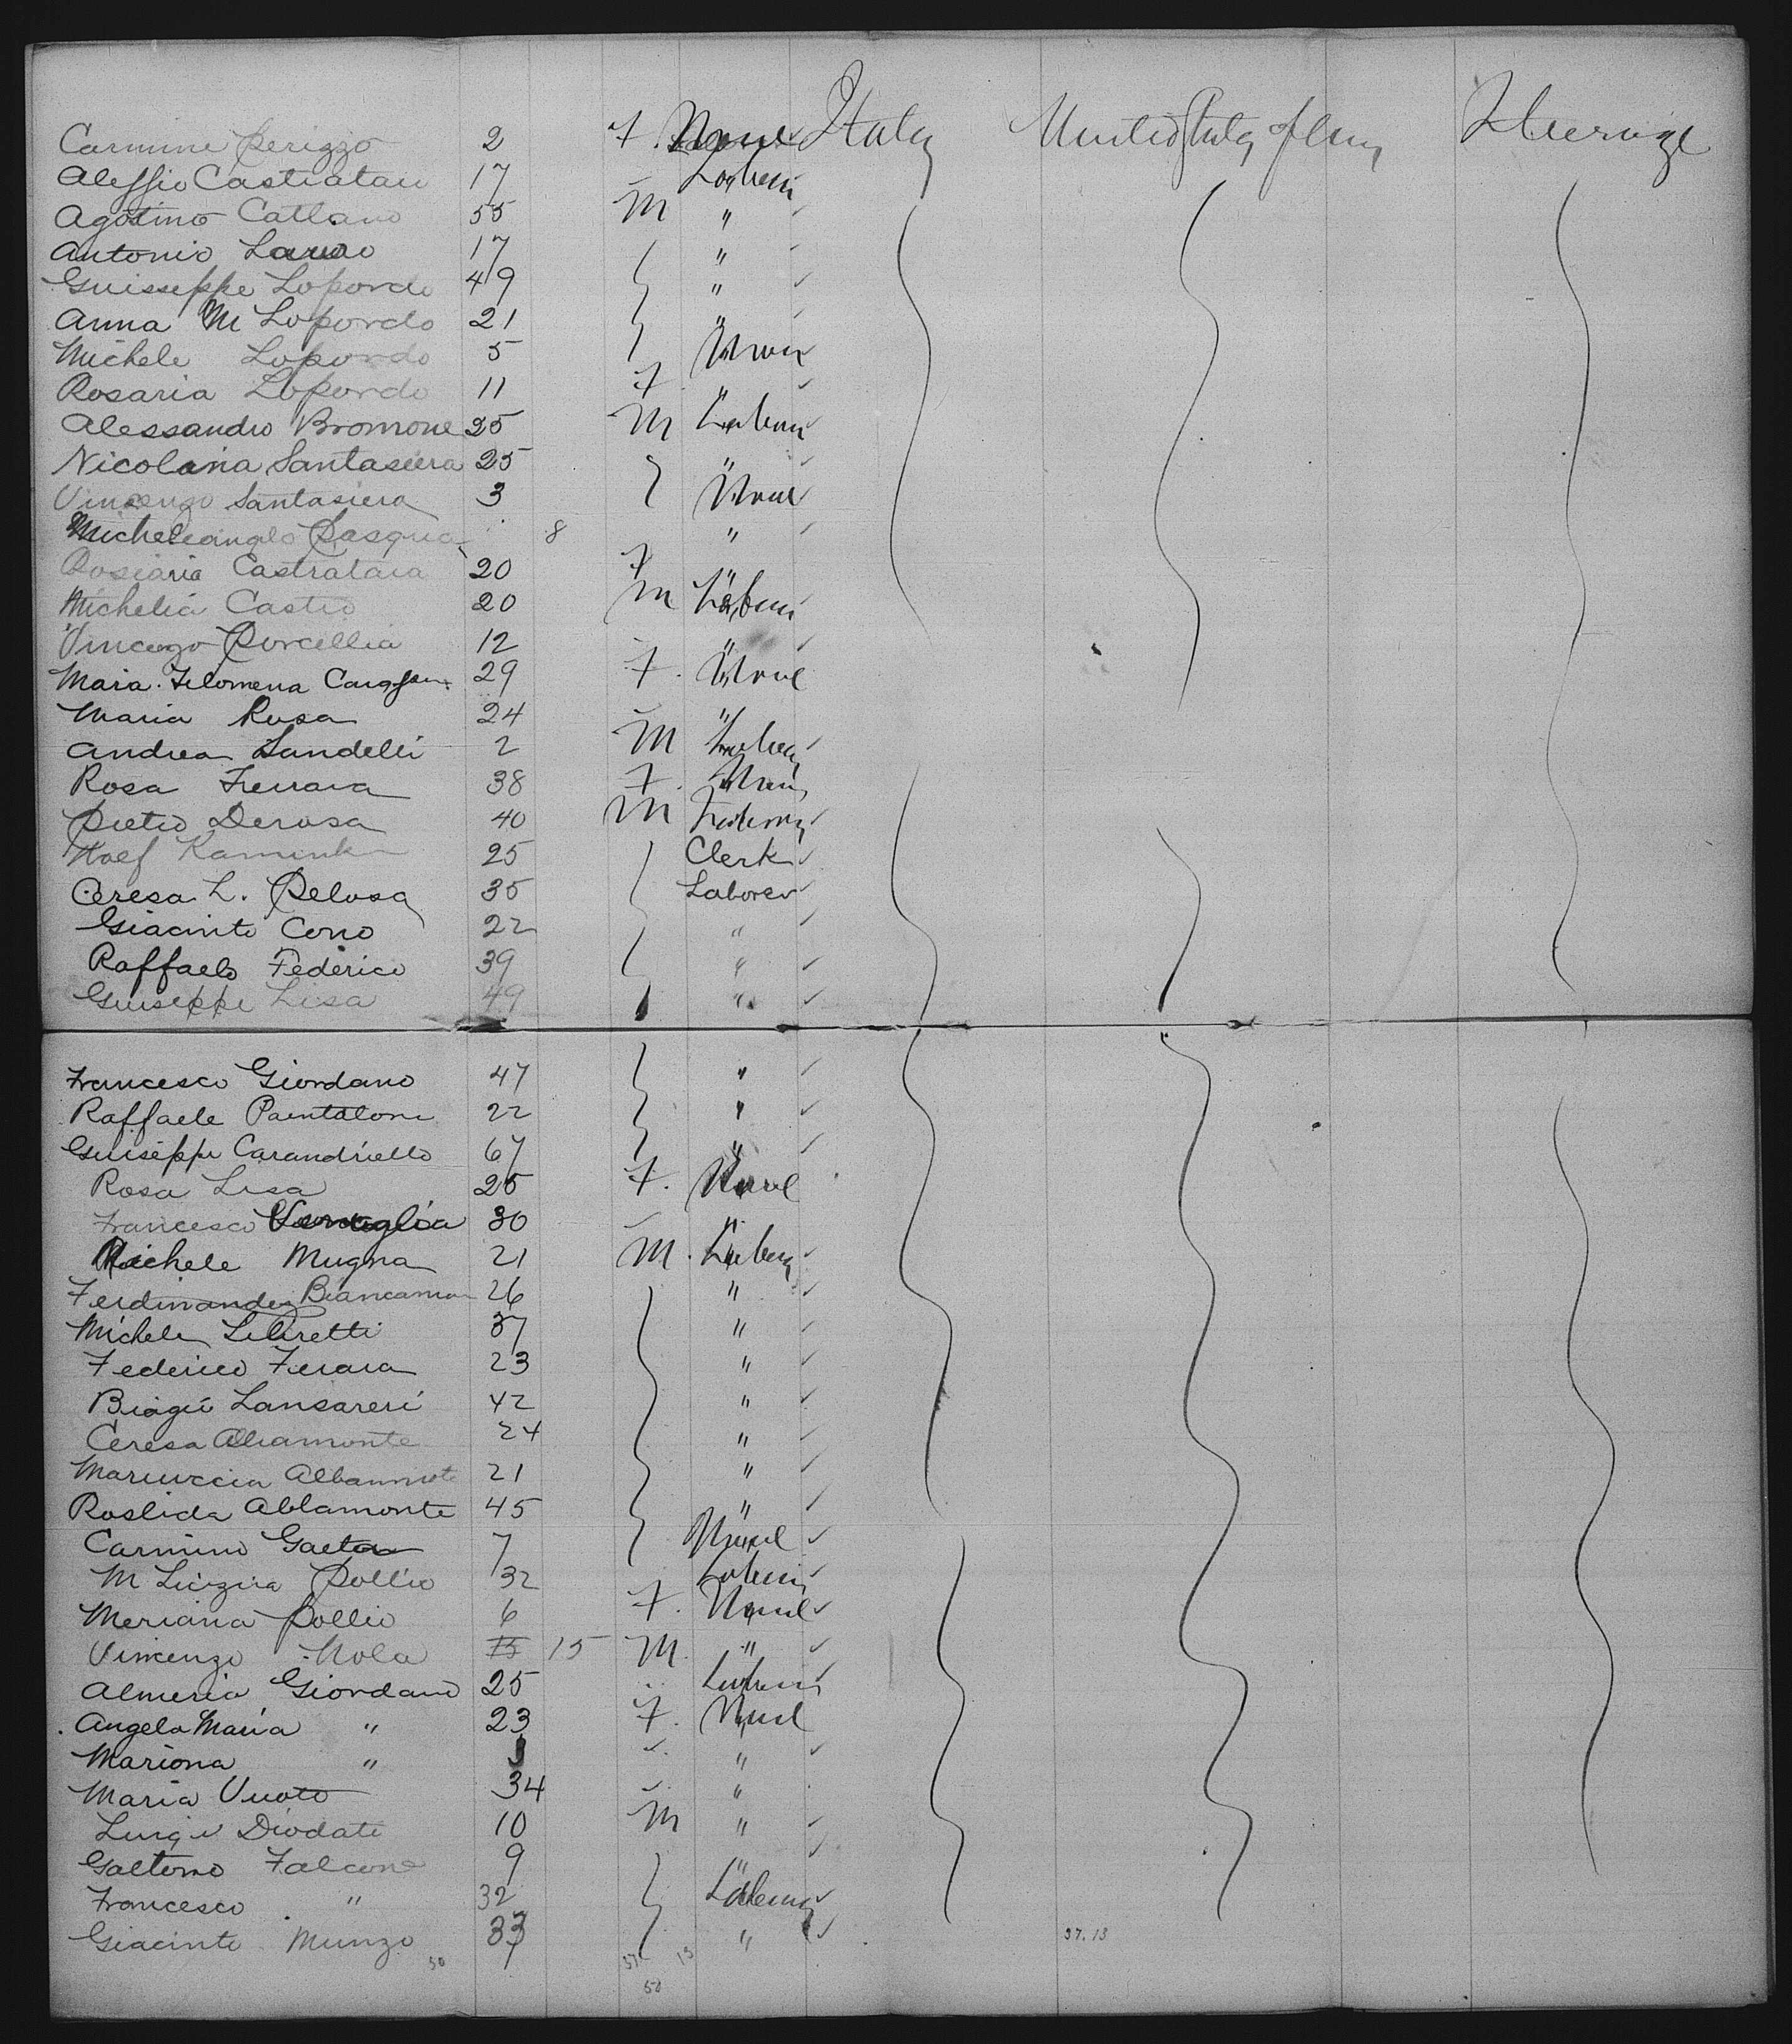 Carmine Perizzo 2 F. None Italy United States of Am Steerage
Alessio Castratau 17 Laborer
Agostino Catlano 55 M "
Antonio 17 "
Guisseppe Lopordo 49 "
Anna M Lopordo 21 "
Michele Lopordo 5 None
Rosaria Lopordo 11 F. "
Alessandro Bromone 25 M Laborer
Nicolaria Santasiera 25 "
Vincenzo Santasiera 3 None
Micheleangelo Pasqua 8 "
Rosiaria Castrataia 20 F "
Michelia Castro 20 M Laborer
Vincenzo Porcellia 12 "
Maria Filomena 29 F. None
Maria Rosa 24 "
Andrea Landelli 2 M Laborer
Rosa Ferrara 38 F. None
Pietro Derosa 40 M
Kaminker 25 Clerk
Ceresa L. Pelosa 35 Laborer
Giacinto Cono 22 "
Raffaelo Federico 39 "
Guiseppe Lisa 49 "
Francesco Giordano 47 "
Raffaele Pantaloni 22 "
Guiseppe Carandriello 67 "
Rosa Lisa 25 F. None
Francesco 30 "
Michele Mugna 21 M. Laborer
Ferdinandez Biancamon 26 "
Michele Libretti 37 "
Federico Ferara 23 "
Biagii Lansareri 42 "
Ceresa 24 "
Mariuccia 21 "
Roslida Ablamonte 45 "
Carmino Gaeta 7 None
M Pollio 32 Laborer
Meriana Pollio 6 F. None
Vincenzo Nola 15 M. "
Almeria Giordano 25 Laborer
Angela Maria " 23 F. None
Mariona " "
Maria Vuoto 34 "
Luigi Diodati 10 M "
Gaetono Falcone 9 "
Francesco " 32 Laborer
Giacinto Munzo 33 "
50 37 13 37.13
50